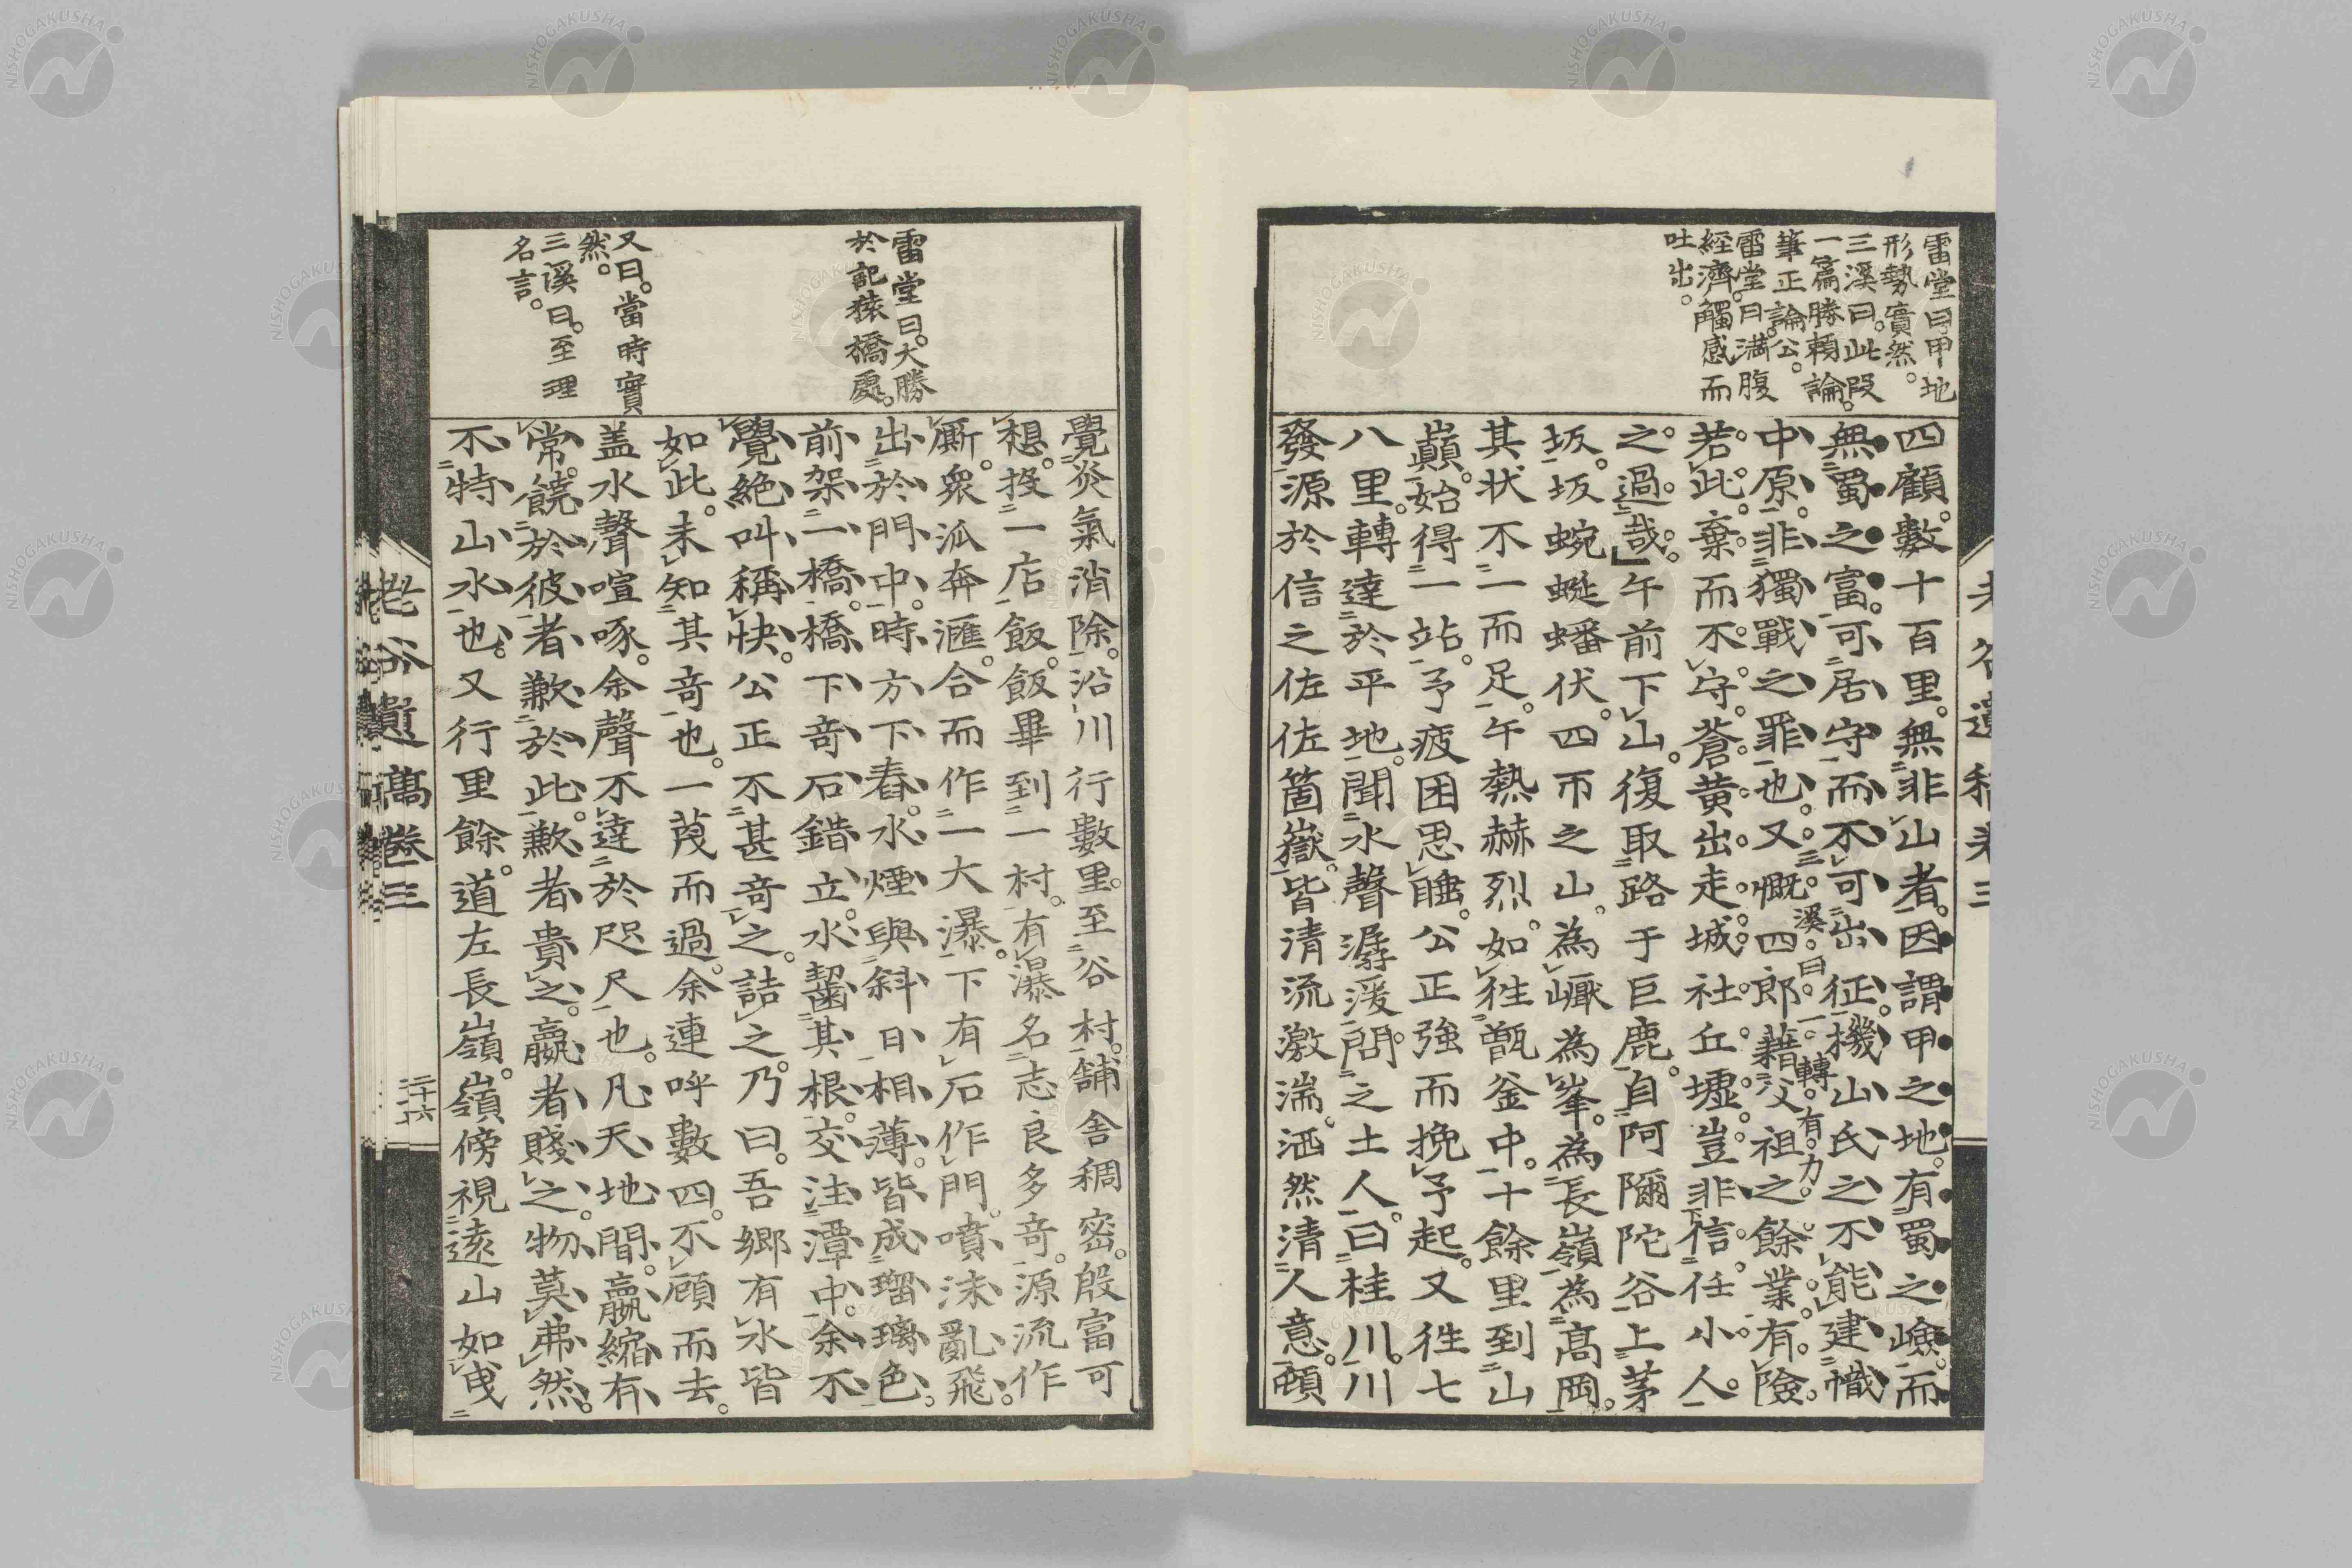 雷堂曰甲地
形勢實然。
三溪曰。此段
一篇勝賴論。
筆正論公。
雷堂曰。満腹
經濟觸感而
吐出。
四顧。數十百里。無非山者。因謂甲之地。有蜀之嶮。而
無蜀之富。可居守而不可出征。機山氏之不能建幟
中原。非獨戰之罪也。又慨四郎藉父祖之餘業。有險
三溪曰。一轉有力。
若此。棄而不守。蒼黄出走。城社丘墟。豈非信任小人
之過哉。」午前下山。復取路于巨鹿。自阿隬陀谷上茅
坂。坂蜿蜒蟠伏。四帀之山。為巘為峯。為長嶺為髙岡。
其状不一而足。午熱赫烈。如徃甑釜中。十餘里到山
巔。始得一站。予疲困思睡。公正強而挽予起。又徃七
八里。轉達於平地。聞水聲潺湲。問之土人。曰桂川。川
發源於信之佐佐箇嶽。皆清流激湍。洒然清人意。頓
老谷遺稿卷三
雷堂曰。大勝
於記猿橋處。
又曰。當時實
然。
三溪曰。至理
名言。
覺炎氣消除。沿川行數里。至谷村。舗舎稠密。殷富可
想。投一店飯。飯畢到一村。有瀑名志良多竒。源流作
厮。衆泒奔滙。合而作一大瀑。下有石作門。噴沫亂飛。
出於門中。時方下舂。水煙與斜日相薄。皆成瑠璃色。
前架一橋。橋下竒石錯立。水齧其根。交注潭中。余不
覺絶叫稱快。公正不甚竒之。詰之。乃曰。吾郷有水皆
如此。未知其竒也。一蔑而過。余連呼數四。不顧而去。
盖水聲喧啄。余聲不達於咫尺也。凡天地間。贏縮有
常。饒於彼者歉於此。歉者貴之。贏者賤之。物莫弗然。
不特山水也。又行里餘。道左長嶺。嶺傍視遠山如曵
老谷遺藁卷三
二十六